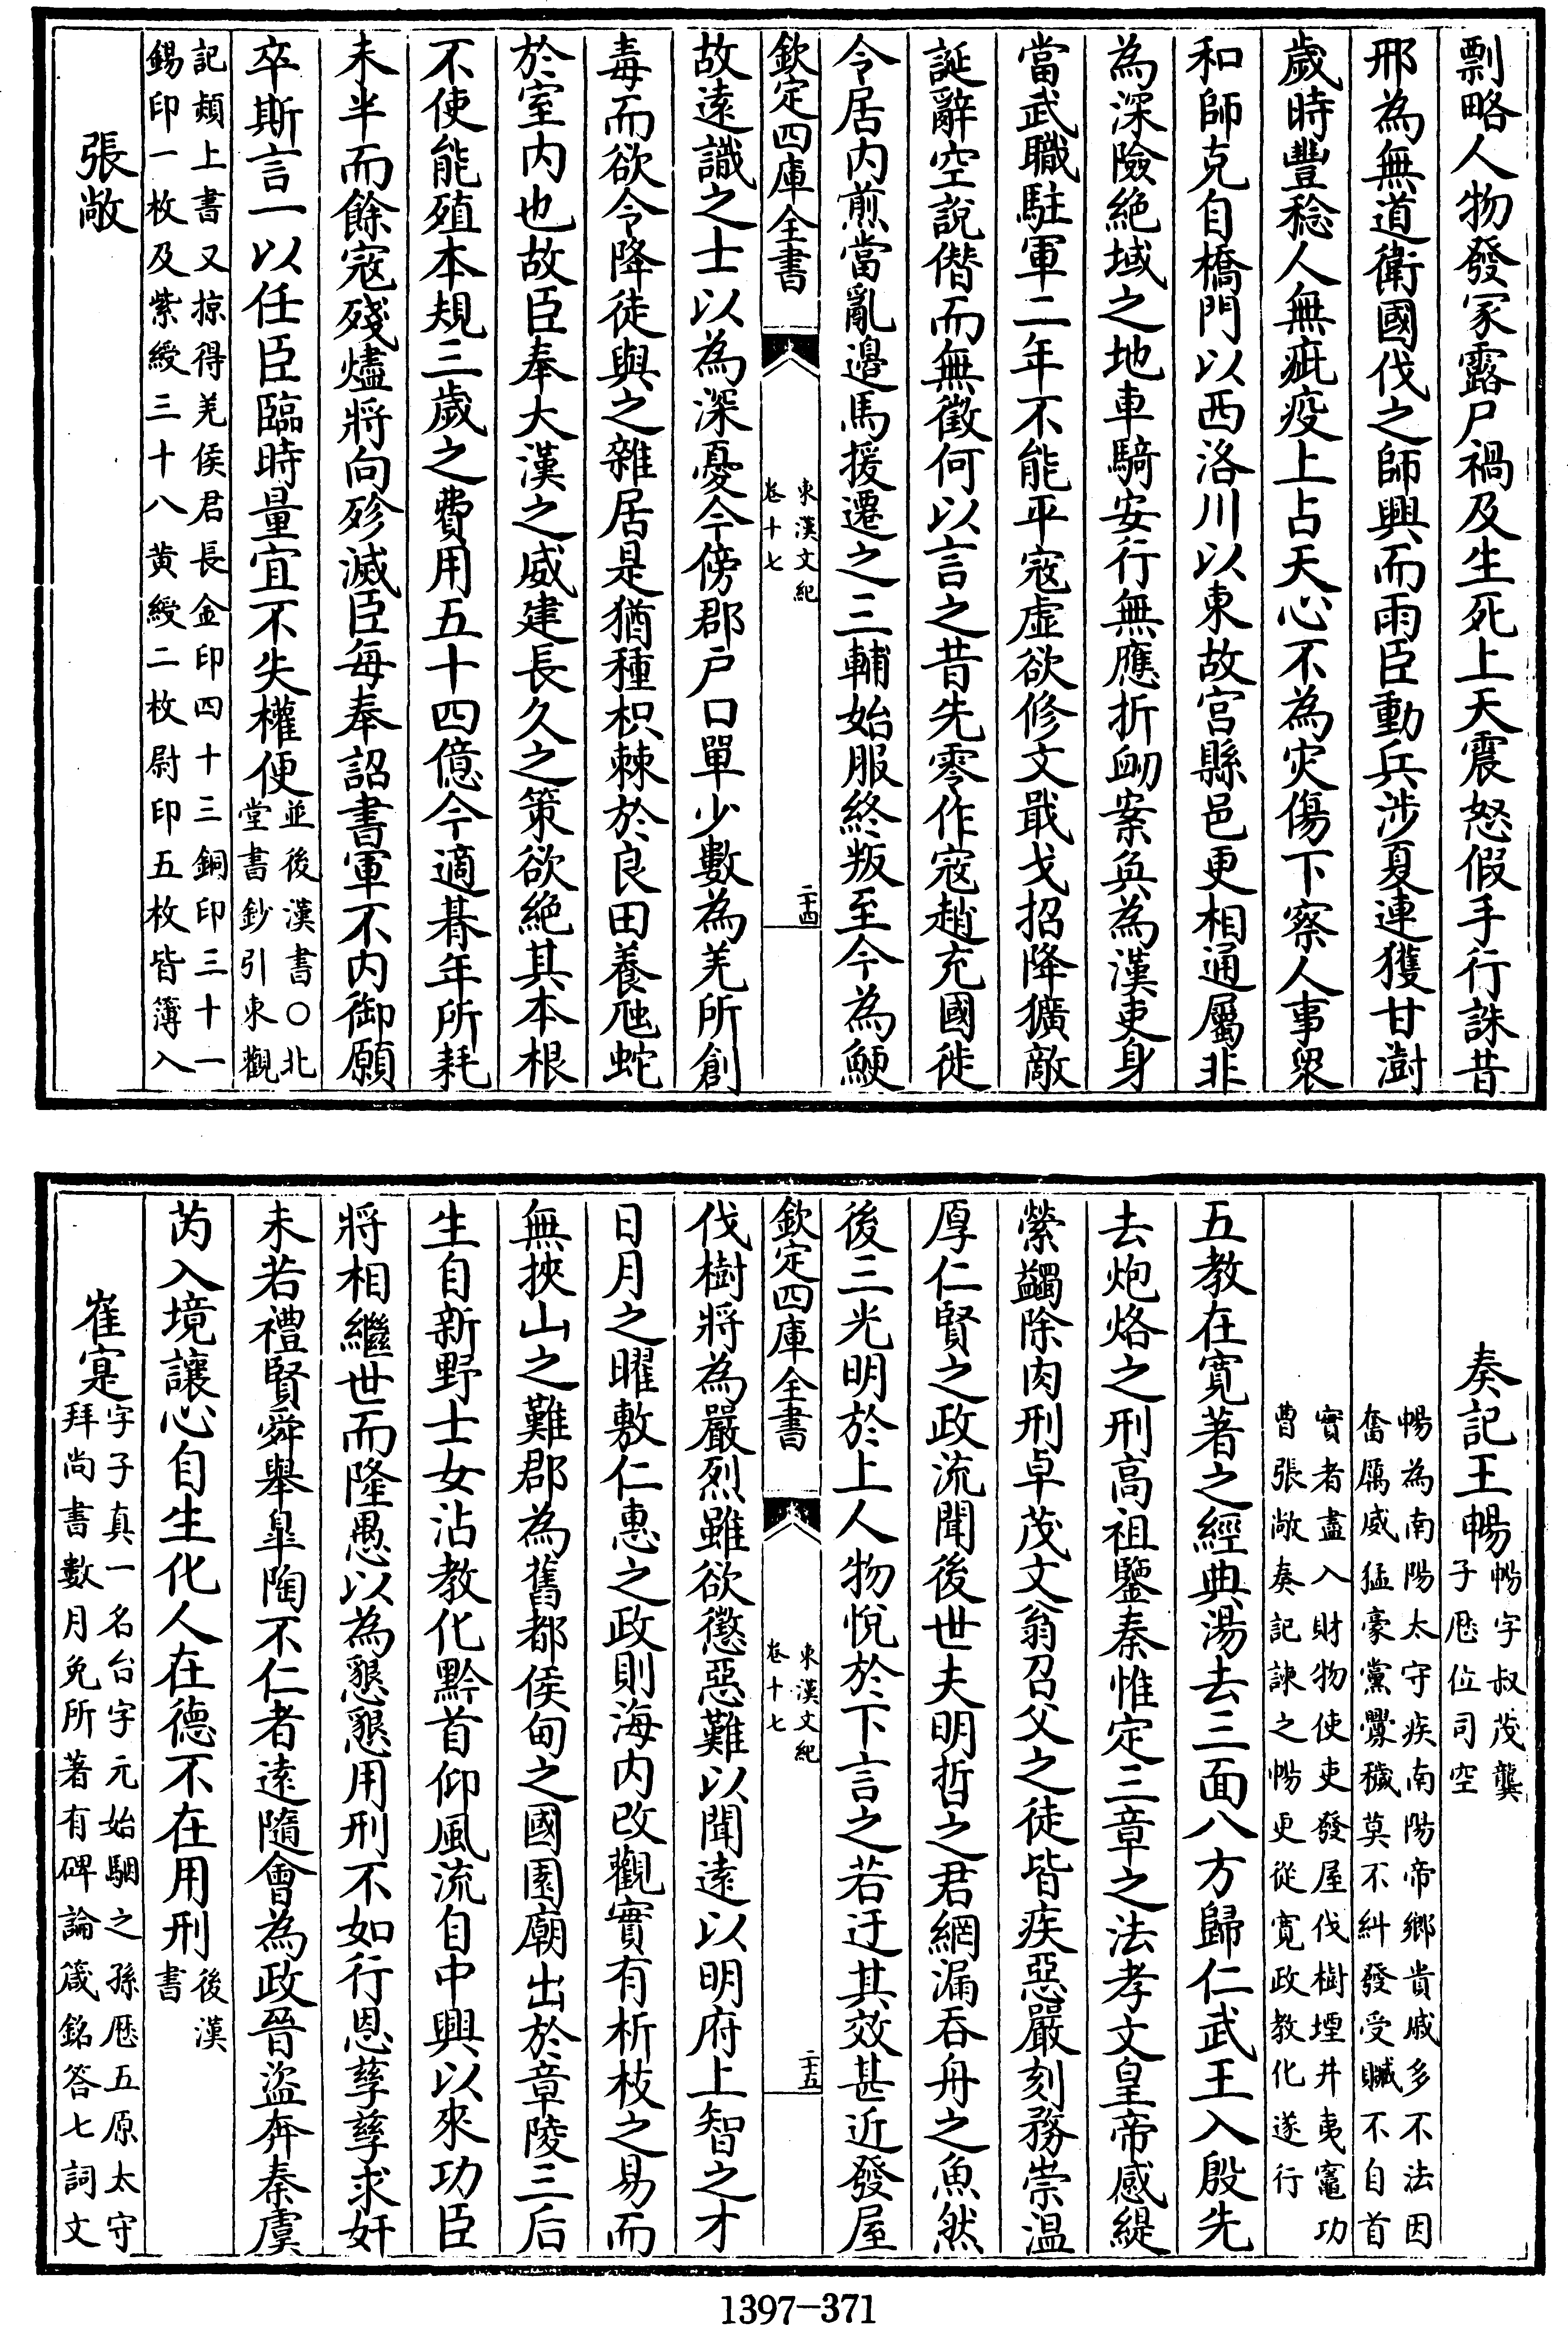 剽略人物發冢露尸禍及生死上天震怒假手行誅昔
邢為無道衛國伐之師興而雨臣動兵涉夏連獲甘澍
歲時豐稔人無疵疫上占天心不為灾傷下察人事衆
和師克自橋門以西洛川以東故宫縣邑更相通屬非
為深險絶域之地車騎安行無應折衂案奐為漢吏身
當武職駐軍二年不能平寇虚欲修文戢戈招降獷敵
誕辭空說僭而無徵何以言之昔先零作寇趙充國徙
令居内煎當亂邊馬援遷之三輔始服終叛至今為鯁
欽定四庫全書
東漢文紀
卷十七
二十四
故遠識之士以為深憂今傍郡户口單少數為羌所創
毒而欲令降徒與之雜居是猶種枳棘於良田養虺蛇
於室内也故臣奉大漢之威建長久之策欲絶其本根
不使能殖本規三歲之費用五十四億今適朞年所耗
未半而餘寇殘燼將向殄滅臣每奉詔書軍不内御願
卒斯言一以任臣臨時量宜不失權便
並後漢書○北
堂書鈔引東觀
記熲上書又掠得羌侯君長金印四十三銅印三十一
錫印一枚及紫綬三十八黄綬二枚尉印五枚皆簿入
張敞
奏記王暢
暢字叔茂龔
子歴位司空
暢為南陽太守疾南陽帝鄉貴戚多不法因
奮厲威猛豪黨釁穢莫不糾發受贓不自首
實者盡入財物使吏發屋伐樹堙井夷竈功
曹張敞奏記諫之暢更從寛政教化遂行
五教在寛著之經典湯去三面八方歸仁武王入殷先
去炮烙之刑高祖鑒秦惟定三章之法孝文皇帝感緹
縈蠲除肉刑卓茂文翁召父之徒皆疾惡嚴刻務崇温
厚仁賢之政流聞後世夫明哲之君網漏吞舟之魚然
後三光明於上人物悅於下言之若迂其效甚近發屋
欽定四庫全書
東漢文紀
卷十七
二十五
伐樹將為嚴烈雖欲懲惡難以聞遠以明府上智之才
日月之曜敷仁惠之政則海内改觀實有析枝之易而
無挾山之難郡為舊都侯甸之國園廟出於章陵三后
生自新野士女沾教化黔首仰風流自中興以來功臣
將相繼世而隆愚以為懇懇用刑不如行恩孳孳求奸
未若禮賢舜舉皐陶不仁者遠隨會為政晉盗奔秦虞
芮入境讓心自生化人在德不在用刑
後漢
書
崔寔
字子真一名台字元始駰之孫歴五原太守
拜尚書數月免所著有碑論箴銘答七詞文
1397-371